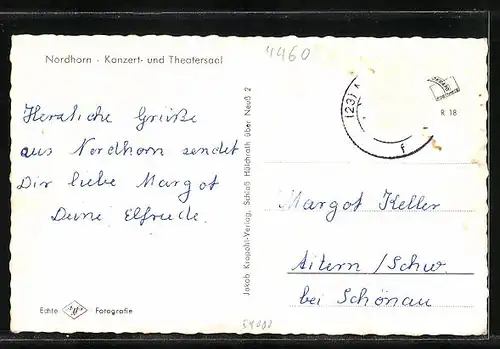 Nordhorn - Konzert- und Theatersaal
4460
(23)
R 18
Herzliche Grüße
aus Nordhorn sendet
Dir liebe Margot
Deine Elfriede.
Jakob Krapohl-Verlag, Schloß Hülchrath über Neuß 2
f
Margot Keller
Aitern/Schw.
bei Schönau
Echte Agfa Fotografie